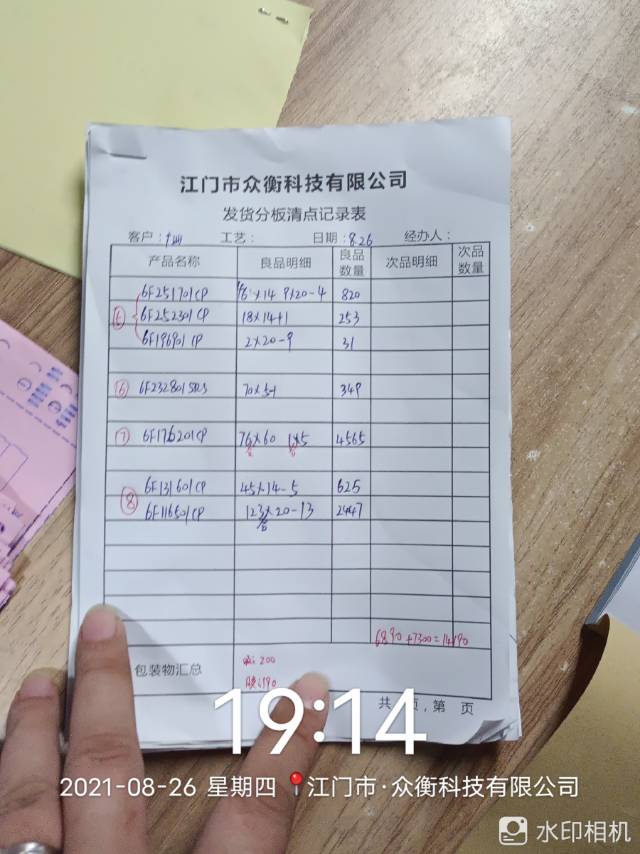 江门市众衡科技有限公司
发货分板清点记录表
客户: 工艺: 日期:8.26 经办人:
产品名称 良品明细 良品数量 次品明细 次品数量
6F251701CP ×14 9×20-4 820
6F252301CP 18×14+1 253
6F196901CP 2×20-9 31
⑥ 6F232801 70×5-1 349
⑦ 6F176201CP 76×60 1×5 4565
6F131601CP 45×14-5 625
⑧ 6F116501CP 123×20-13 2447
6890+7300=14190
包装物汇总 200
190
共 页,第 页
19:14
2021-08-26 星期四 江门市·众衡科技有限公司
水印相机